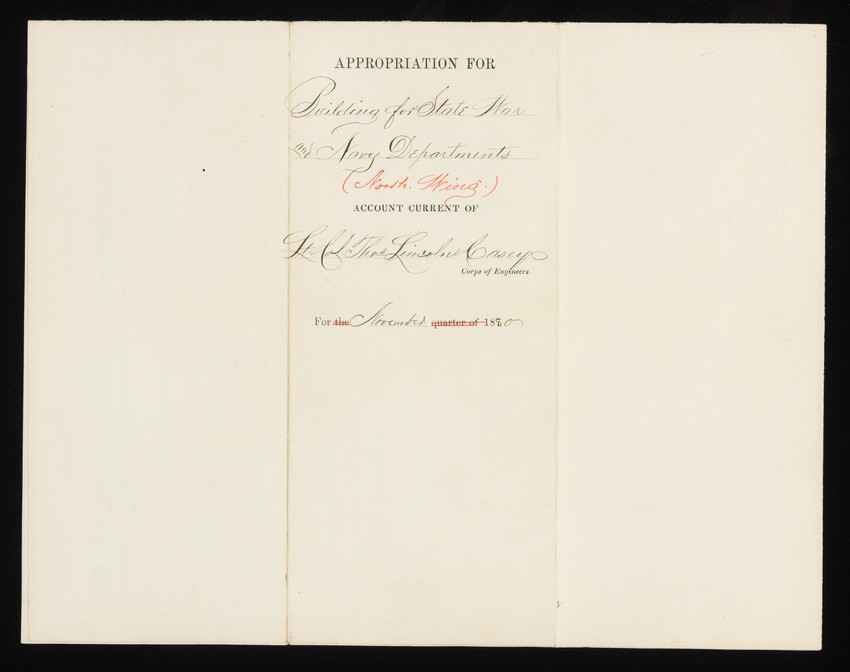 APPROPRIATION FOR
Building for State War
and Navy Departments
(North Wing.)
ACCOUNT CURRENT OF
Lt. Col. Thos Lincoln Casey
Corps of Engineers.
For the November quarter of 1880